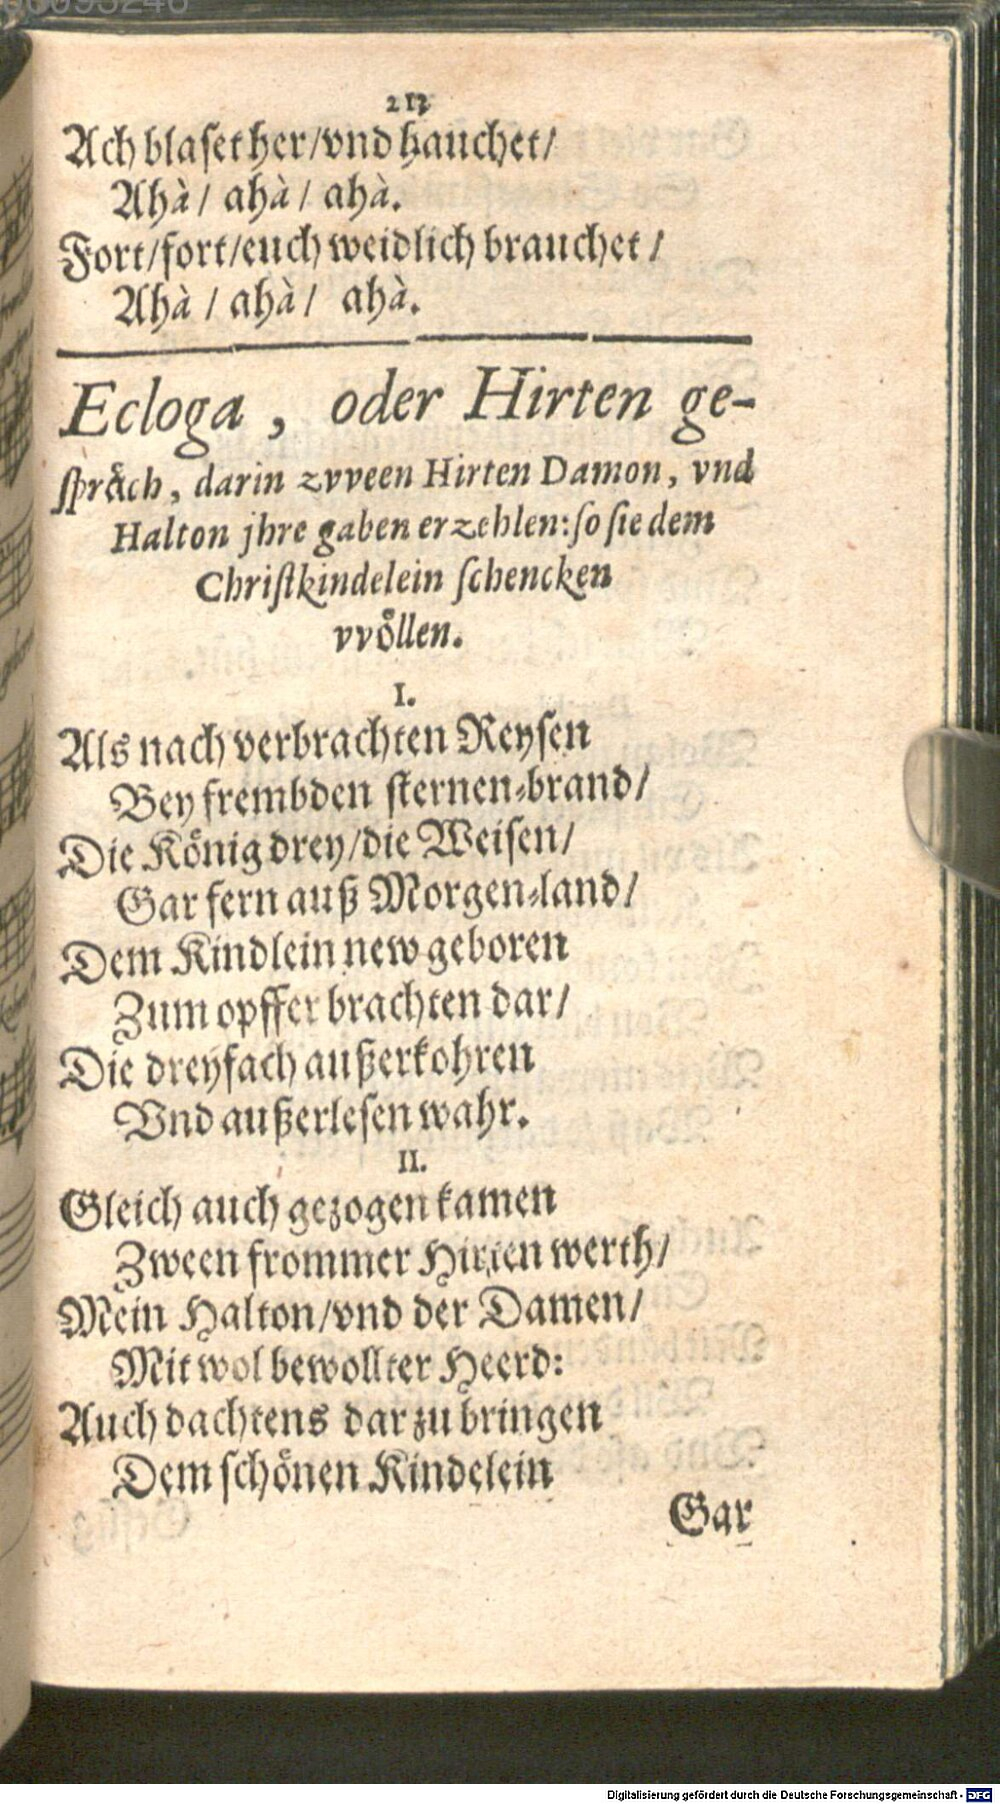 213
Ach blaset her/vnd hauchet/
Ahà/ ahà/ ahà.
Fort/fort/euch weidlich brauchet/
Ahà/ ahà/ ahà.
Ecloga, oder Hirten ge-
ſpräch, darin zvveen Hirten Damon, vnd
Halton jhre gaben erzehlen: ſo ſie dem
Chriſtkindelein ſchencken
vvöllen.
I.
Als nach verbrachten Reyſen
Bey frembden ſternen-brand/
Die König drey/die Weiſen/
Gar fern auß Morgen-land/
Dem Kindlein new geboren
Zum opffer brachten dar/
Die dreyfach außerkohren
Vnd außerleſen wahr.
II.
Gleich auch gezogen kamen
Zween frommer Hirten werth/
Mein Halton/vnd der Damen/
Mit wol bewollter Heerd:
Auch dachtens dar zu bringen
Dem ſchönen Kindelein
Gar
Digitalisierung gefördert durch die Deutsche Forschungsgemeinschaft - DFG